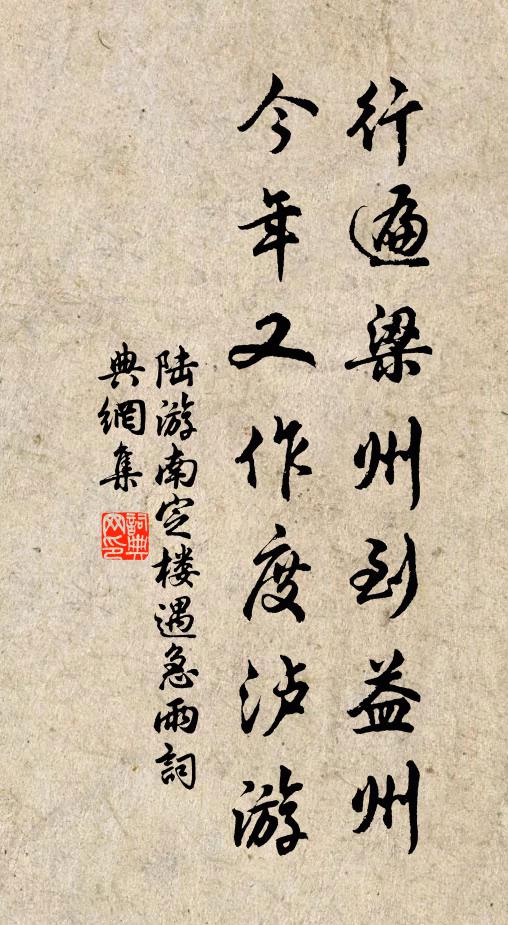 行遍梁州到益州
今年又作度泸游
陆游南定楼遇急雨詞
典網集
詞典網印